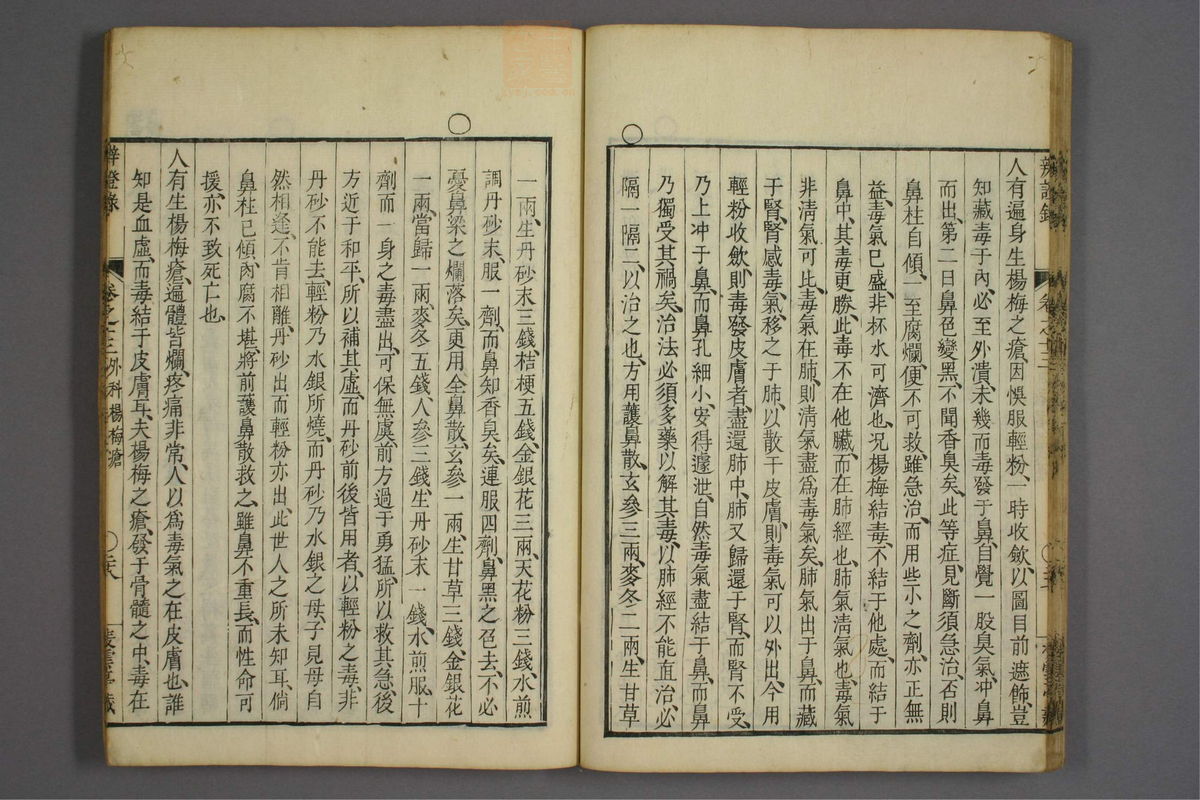 人有遍身生楊梅之瘡、因悞服輕粉、一時收斂、以圖目前遮飾、豈
知藏毒于內、必至外潰、未幾而毒發于鼻、自覺一股臭氣、冲鼻
而出、第二日鼻色變黑、不聞香臭矣、此等症、見斷須急治、否則
鼻柱自傾、一至腐爛、便不可救、雖急治、而用些小之劑、亦正無
益、毒氣已盛、非杯水可濟也、況楊梅結毒、不結于他處、而結于
鼻中、其毒更勝、此毒不在他臟、而在肺經也、肺氣清氣也、毒氣
非清氣可比、毒氣在肺、則清氣盡爲毒氣矣、肺氣出于鼻、而藏
于腎、腎感毒氣、移之于肺、以散于皮膚、則毒氣可以外出、今用
輕粉收斂、則毒發皮膚者、盡還肺中、肺又歸還于腎、而腎不受、
乃上冲于鼻、而鼻孔細小、安得遽泄、自然毒氣盡結于鼻、而鼻
乃獨受其禍矣、治法必須多藥以解其毒、以肺經不能直治、必
隔一隔二、以治之也、方用護鼻散、玄參三兩、麥冬二兩、生甘草
辨證錄
卷之十三
一兩、生丹砂末三錢、桔梗五錢、金銀花三兩、天花粉三錢、水煎
調丹砂末、服一劑、而鼻知香臭矣、連服四劑、鼻黑之色去、不必
憂鼻梁之爛落矣、更用全鼻散、玄參一兩、生甘草三錢、金銀花
一兩、當歸一兩、麥冬五錢、人參三錢、生丹砂末一錢、水煎服、十
劑、而一身之毒盡出、可保無虞、前方過于勇猛、所以救其急、後
方近于和平、所以補其虛、而丹砂前後皆用者、以輕粉之毒、非
丹砂不能去、輕粉乃水銀所燒、而丹砂乃水銀之母、子見母自
然相逢、不肯相離、丹砂出而輕粉亦出、此世人之所未知耳、倘
鼻柱已傾、內腐不堪、將前護鼻散救之、雖鼻不重長、而性命可
援、亦不致死亡也、
人有生楊梅瘡、遍體皆爛、疼痛非常、人以爲毒氣之在皮膚也、誰
知是血虛、而毒結于皮膚耳、夫楊梅之瘡、發于骨髓之中、毒在
辨證錄
卷之十三 外科楊梅瘡